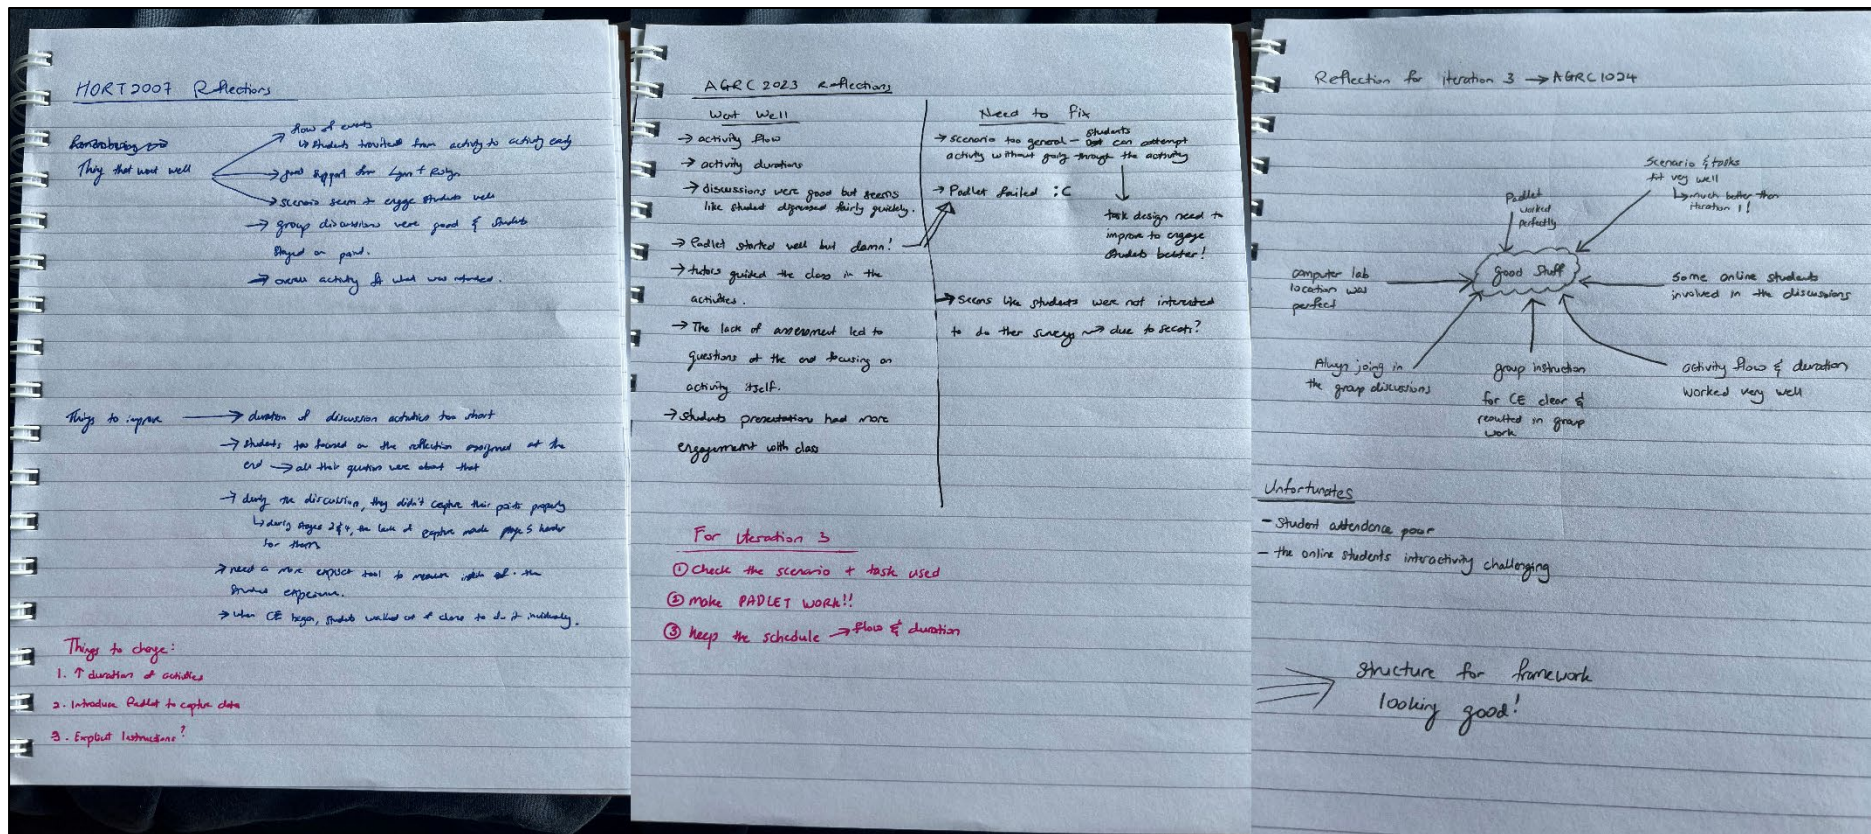 HORT2007 Reflections
Thing that went well
flow of events
↳ students transitioned from activity to activity easily
→ good support from Lynn +
→ scenario seem to engage students well
→ group discussions were good & students
stayed on point.
→ overall activity fit what was intended.
Things to improve → duration of discussion activities too short
→ students too focused on the reflection assigned at the
end → all their questions were about that
→ during the discussion, they didn't capture their points properly
↳ during stages 3 & 4, the lack of capture made stage 5 harder
for them
→ need a more explicit tool to measure of the
student experience.
→ when CE began, students walked out of class to do it individually.
Things to change:
1. ↑ duration of activities
2. Introduce Padlet to capture data
3. Explicit Instructions?
AGRC2023 Reflections
Went Well
→ activity flow
→ activity durations
→ discussions were good but seems
like student digressed fairly quickly.
→ Padlet started well but damn!
→ tutors guided the class in the
activities.
→ The lack of assessment led to
questions at the end focusing on
activity itself.
→ students presentation had more
engagement with class
Need to fix
→ scenario too general - students can attempt
activity without going through the activity
task design need to
improve to engage
students better!
→ Padlet failed :C
→ Seems like students were not interested
to do ther surveys → due to secats?
For Iteration 3
① Check the scenario + task used
② make PADLET WORK!!
③ keep the schedule → flow & duration
Reflection for iteration 3 → AGRC1024
Padlet
worked
perfectly
Scenario & tasks
fit very well
↳ much better than
iteration 1!
good stuff
computer lab
location was
perfect
Some online students
involved in the discussions
Always joing in
the group discussions
group instruction
for CE clear &
resulted in group
work
activity flow & duration
worked very well
Unfortunates
- Student attendence poor
- the online students interactivity challenging
Structure for framework
looking good!